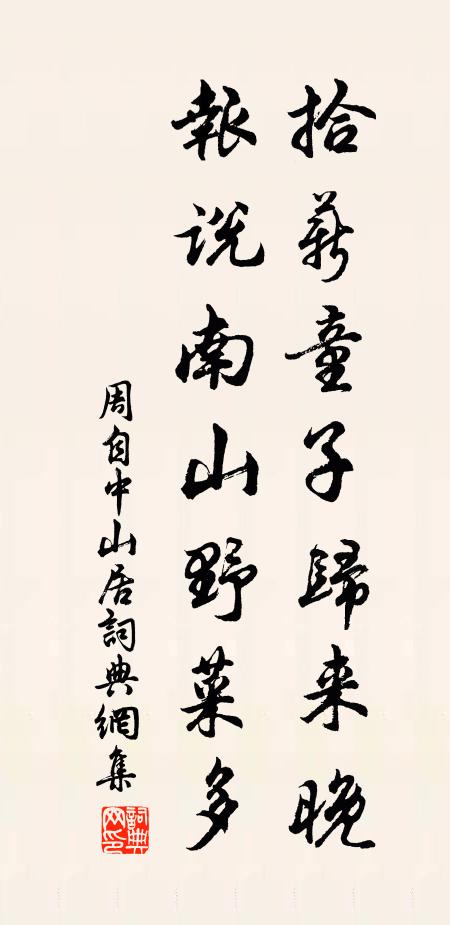 拾薪童子歸来晚
報説南山野菜多
周自中山居詞典網集
詞典
网印